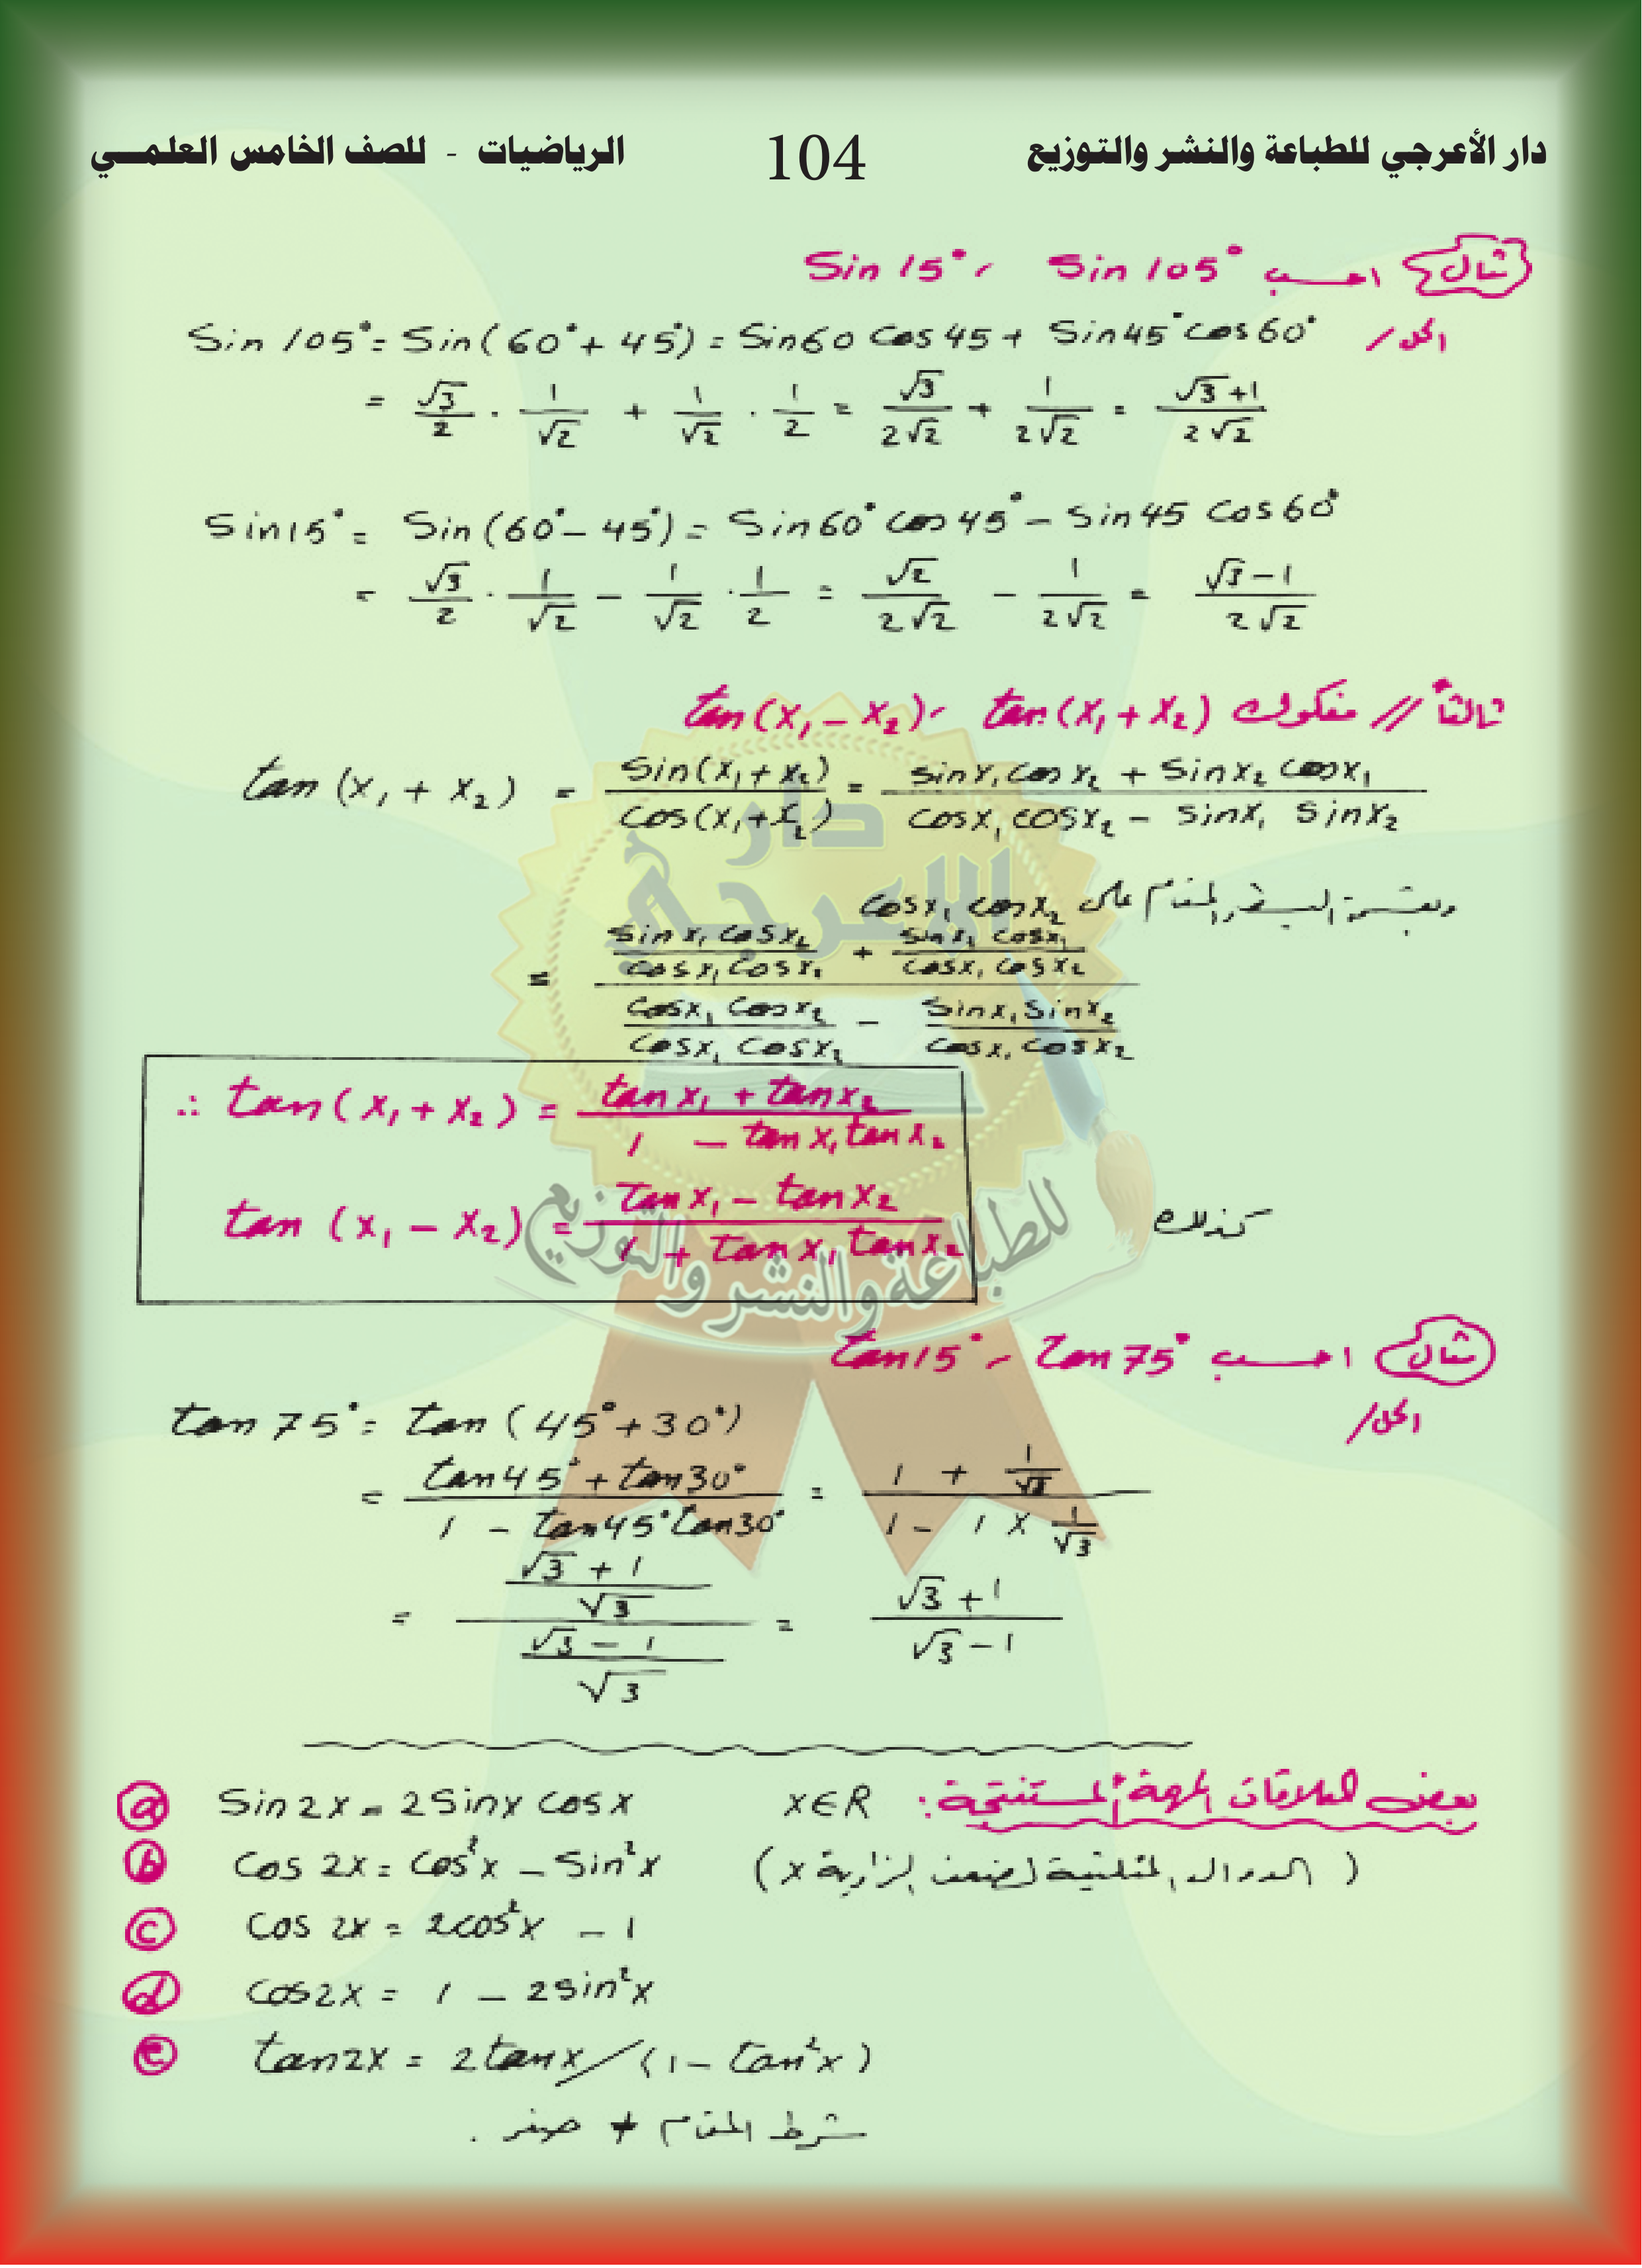 دار الأعرجي للطباعة والنشر والتوزيع 104 الرياضيات - للصف الخامس العلمي
مثال احسب Sin 105° ، Sin 15°
الحل / Sin 105° = Sin(60° + 45°) = Sin60 cos 45 + Sin45° cos60°
= √3/2 · 1/√2 + 1/√2 · 1/2 = √3/2√2 + 1/2√2 = √3+1/2√2
Sin15° = Sin(60° – 45°) = Sin60° cos45° – Sin45 cos60°
= √3/2 · 1/√2 – 1/√2 · 1/2 = √2/2√2 – 1/2√2 = √3–1/2√2
ثالثاً // مفكوك tan(x₁ + x₂) ، tan(x₁ – x₂)
tan(x₁ + x₂) = sin(x₁ + x₂)/cos(x₁+x₂) = sinx₁ cosx₂ + sinx₂ cosx₁/cosx₁ cosx₂ – sinx₁ sinx₂
وبقسمة البسط والمقام على cosx₁ cosx₂
= (sinx₁ cosx₂/cosx₁ cosx₂ + sinx₂ cosx₁/cosx₁ cosx₂)/(cosx₁ cosx₂/cosx₁ cosx₂ – sinx₁ sinx₂/cosx₁ cosx₂)
∴ tan(x₁ + x₂) = tanx₁ + tanx₂/1 – tanx₁ tanx₂
كذلك tan(x₁ – x₂) = tanx₁ – tanx₂/1 + tanx₁ tanx₂
دار
الاعرجي
للطباعة والنشر والتوزيع
مثال احسب tan75° ، tan15°
الحل /
tan 75° = tan(45° + 30°)
= tan45° + tan30°/1 – tan45° tan30° = (1 + 1/√3)/(1 – 1 × 1/√3)
= (√3 + 1/√3)/(√3 – 1/√3) = √3 + 1/√3 – 1
بعض العلاقات المهمة المستنتجة :
a sin2x = 2sinx cosx x∈R
b cos 2x = cos²x – sin²x ( الدوال المثلثية لضعف الزاوية x )
c cos 2x = 2cos²x – 1
d cos2x = 1 – 2sin²x
e tan2x = 2tanx/(1 – tan²x)
شرط المقام ≠ صفر .